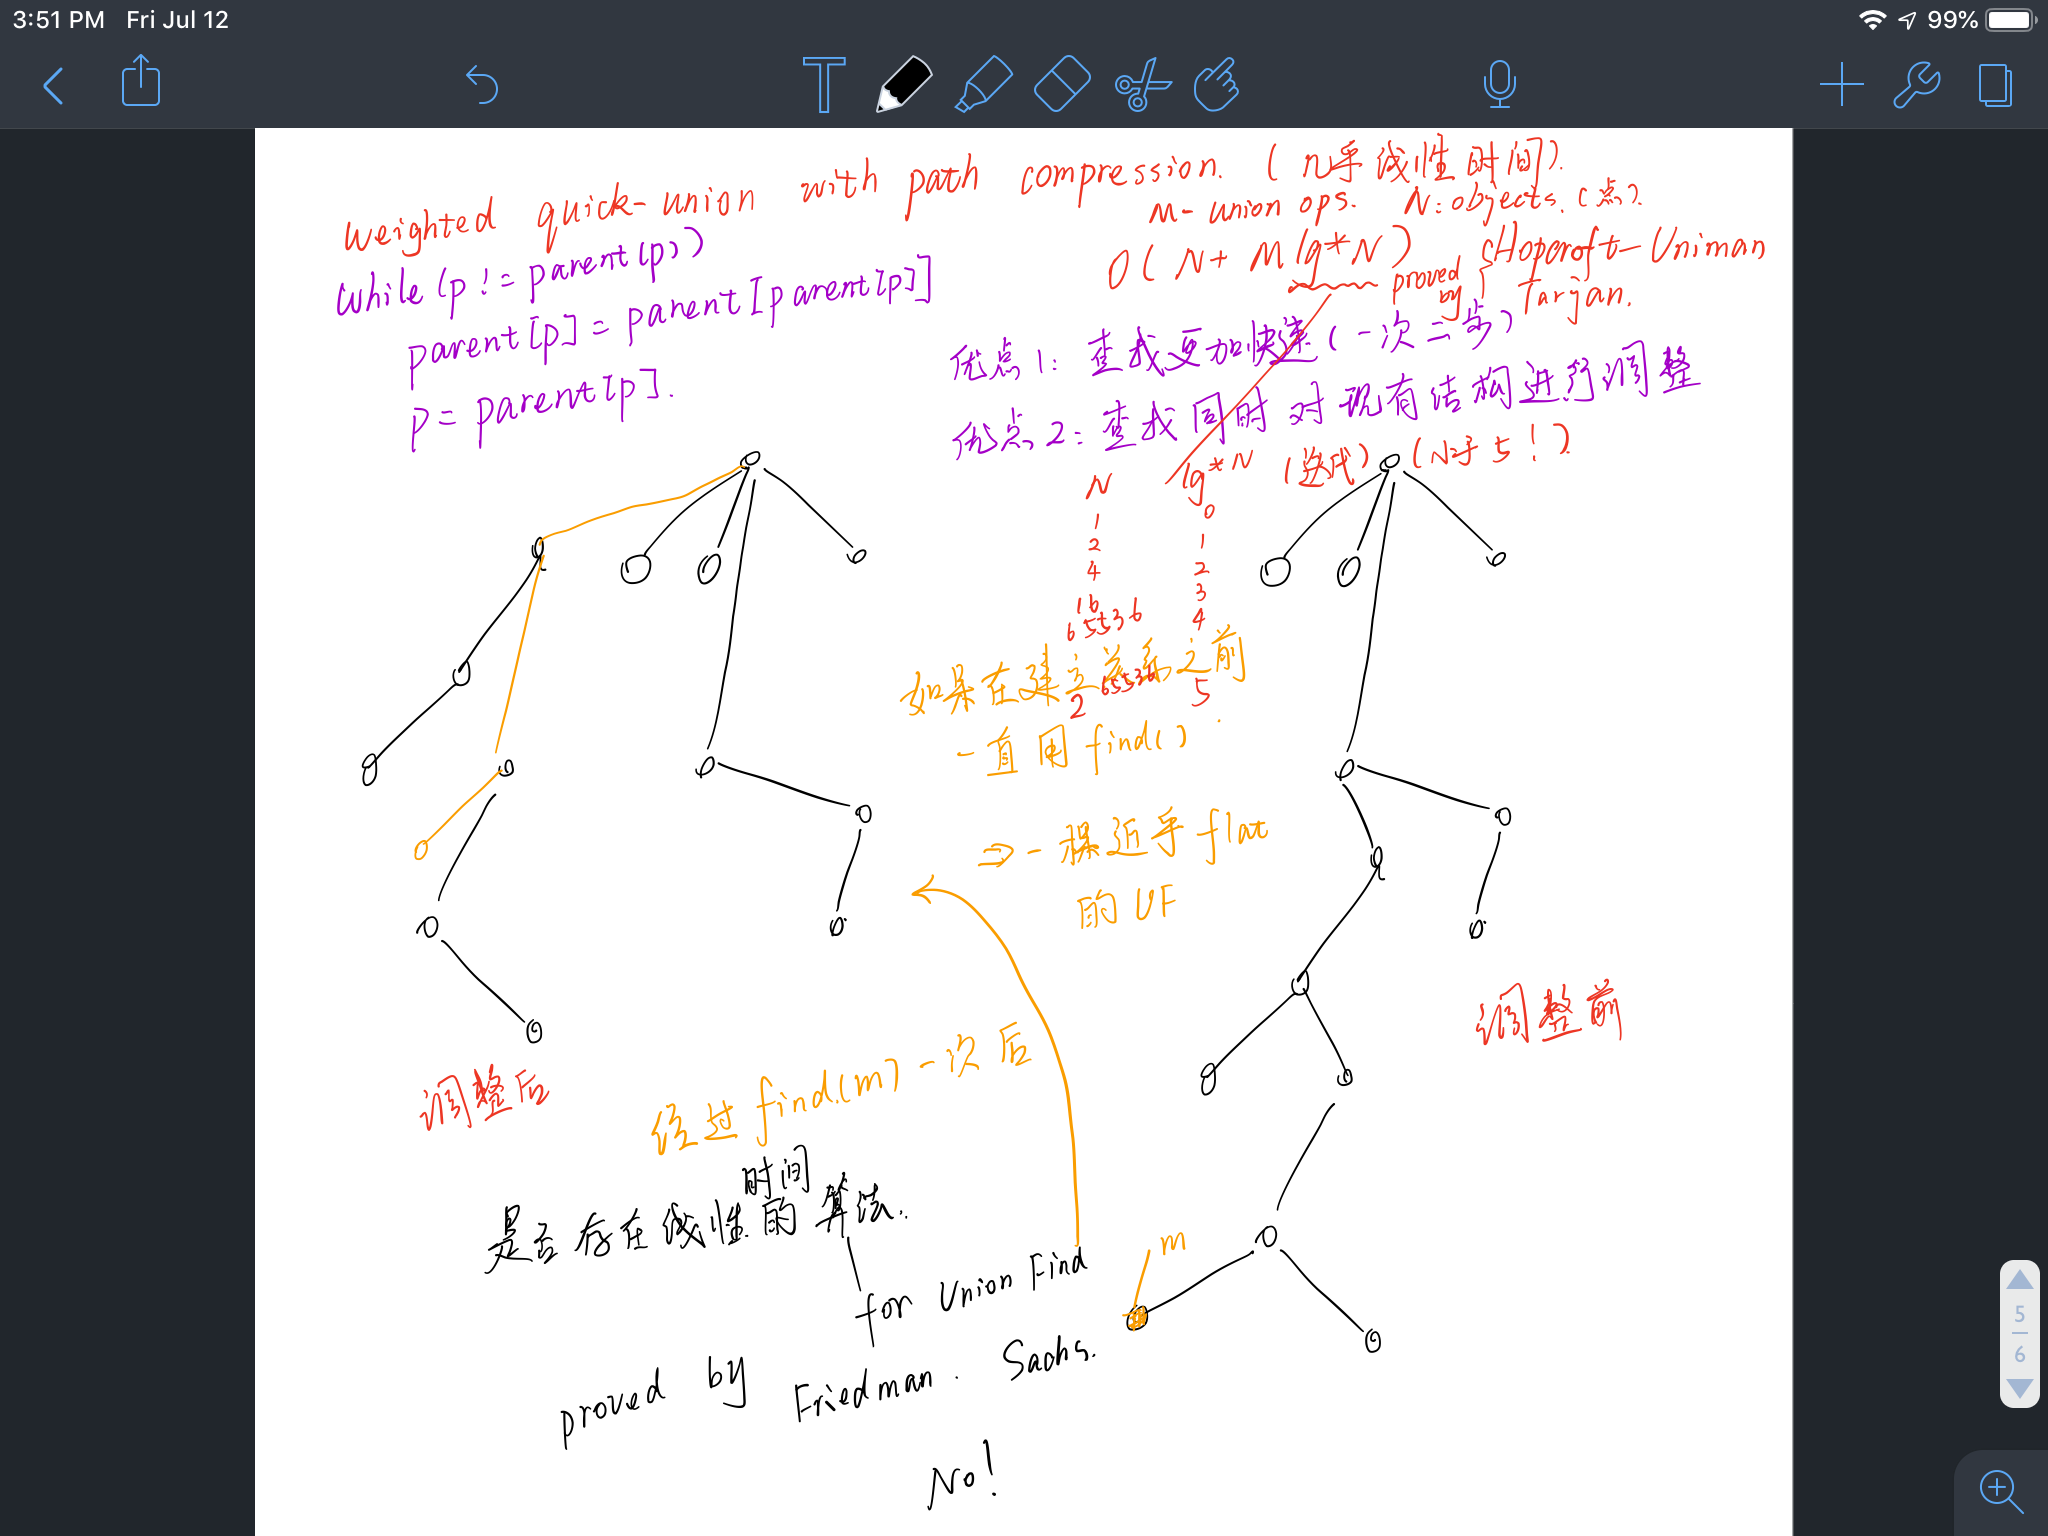 3:51 PM Fri Jul 12
99%
Weighted quick-union with path compression. (几乎线性时间).
M- union ops. N: objects. (点).
O( N+ M lg*N )
proved by { Hopcroft-Uniman
Tarjan.
while (p != parent(p))
parent[p] = parent[parent[p]]
p = parent[p].
优点1: 查找更加快速(一次二步)
优点2: 查找同时对现有结构进行调整
N lg*N (迭代) (N≥于5!)
1 0
2 1
4 2
16 3
65536 4
2 65536 5
如果在建立关系之前
一直用 find()
⇒ 一棵近乎 flat
的 UF
调整前
调整后
经过 find(m) 一次后
m
时间
是否存在线性的算法.
for Union Find
proved by Friedman. Sachs.
No!
5
6